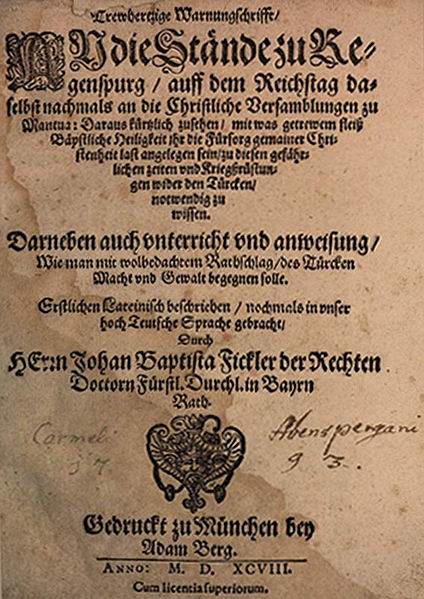 Trewhertzige Warnungschrifft/
AN die Stände zu Re-
genspurg/ auff dem Reichstag da-
selbst nachmals an die Christliche Versamblungen zu
Mantua: Daraus kürtzlich zusehen/ mit was getrewem fleiß
Bäpstliche Heiligkeit ihr die Fürsorg gemainer Chri-
stenheit last angelegen sein/ zu diesen gefähr-
lichen zeiten vnd Kriegßrüstun-
gen wider den Türcken/
notwendig zu
wissen.
Darneben auch vnterricht vnd anweisung/
Wie man mit wolbedachtem Rathschlag/ des Türcken
Macht vnd Gewalt begegnen solle.
Erstlichen Lateinisch beschrieben/ nochmals in vnser
hoch Teutsche Sprache gebracht/
Durch
HErrn Johan Baptista Fickler der Rechten
Doctorn Fürstl. Durchl. in Bayrn
Rath.
Carmel. Abenspergani
17 93.
Gedruckt zu München bey
Adam Berg.
ANNO: M. D. XCVIII.
Cum licentia superiorum.